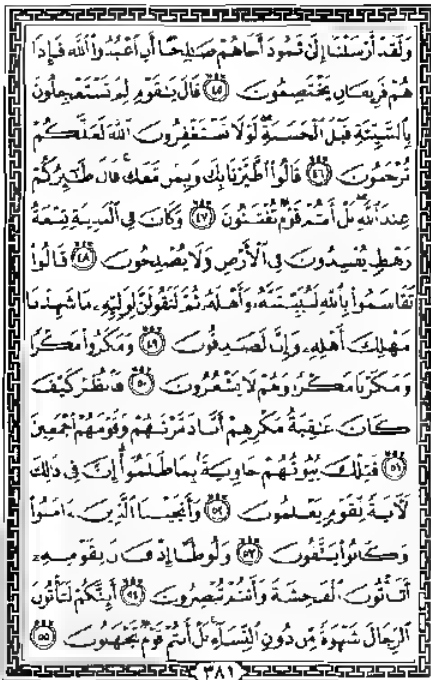 وَلَقَدْ أَرْسَلْنَآ إِلَىٰ ثَمُودَ أَخَاهُمْ صَـٰلِحًا أَنِ ٱعْبُدُوا۟ ٱللَّهَ فَإِذَا
هُمْ فَرِيقَانِ يَخْتَصِمُونَ ٤٥ قَالَ يَـٰقَوْمِ لِمَ تَسْتَعْجِلُونَ
بِٱلسَّيِّئَةِ قَبْلَ ٱلْحَسَنَةِ لَوْلَا تَسْتَغْفِرُونَ ٱللَّهَ لَعَلَّكُمْ
تُرْحَمُونَ ٤٦ قَالُوا۟ ٱطَّيَّرْنَا بِكَ وَبِمَن مَّعَكَ قَالَ طَـٰٓئِرُكُمْ
عِندَ ٱللَّهِ بَلْ أَنتُمْ قَوْمٌ تُفْتَنُونَ ٤٧ وَكَانَ فِى ٱلْمَدِينَةِ تِسْعَةُ
رَهْطٍ يُفْسِدُونَ فِى ٱلْأَرْضِ وَلَا يُصْلِحُونَ ٤٨ قَالُوا۟
تَقَاسَمُوا۟ بِٱللَّهِ لَنُبَيِّتَنَّهُۥ وَأَهْلَهُۥ ثُمَّ لَنَقُولَنَّ لِوَلِيِّهِۦ مَا شَهِدْنَا
مَهْلِكَ أَهْلِهِۦ وَإِنَّا لَصَـٰدِقُونَ ٤٩ وَمَكَرُوا۟ مَكْرًا
وَمَكَرْنَا مَكْرًا وَهُمْ لَا يَشْعُرُونَ ٥٠ فَٱنظُرْ كَيْفَ
كَانَ عَـٰقِبَةُ مَكْرِهِمْ أَنَّا دَمَّرْنَـٰهُمْ وَقَوْمَهُمْ أَجْمَعِينَ
٥١ فَتِلْكَ بُيُوتُهُمْ خَاوِيَةًۢ بِمَا ظَلَمُوٓا۟ إِنَّ فِى ذَٰلِكَ
لَـَٔايَةً لِّقَوْمٍ يَعْلَمُونَ ٥٢ وَأَنجَيْنَا ٱلَّذِينَ ءَامَنُوا۟
وَكَانُوا۟ يَتَّقُونَ ٥٣ وَلُوطًا إِذْ قَالَ لِقَوْمِهِۦٓ
أَتَأْتُونَ ٱلْفَـٰحِشَةَ وَأَنتُمْ تُبْصِرُونَ ٥٤ أَئِنَّكُمْ لَتَأْتُونَ
ٱلرِّجَالَ شَهْوَةً مِّن دُونِ ٱلنِّسَآءِ بَلْ أَنتُمْ قَوْمٌ تَجْهَلُونَ ٥٥
٣٨١